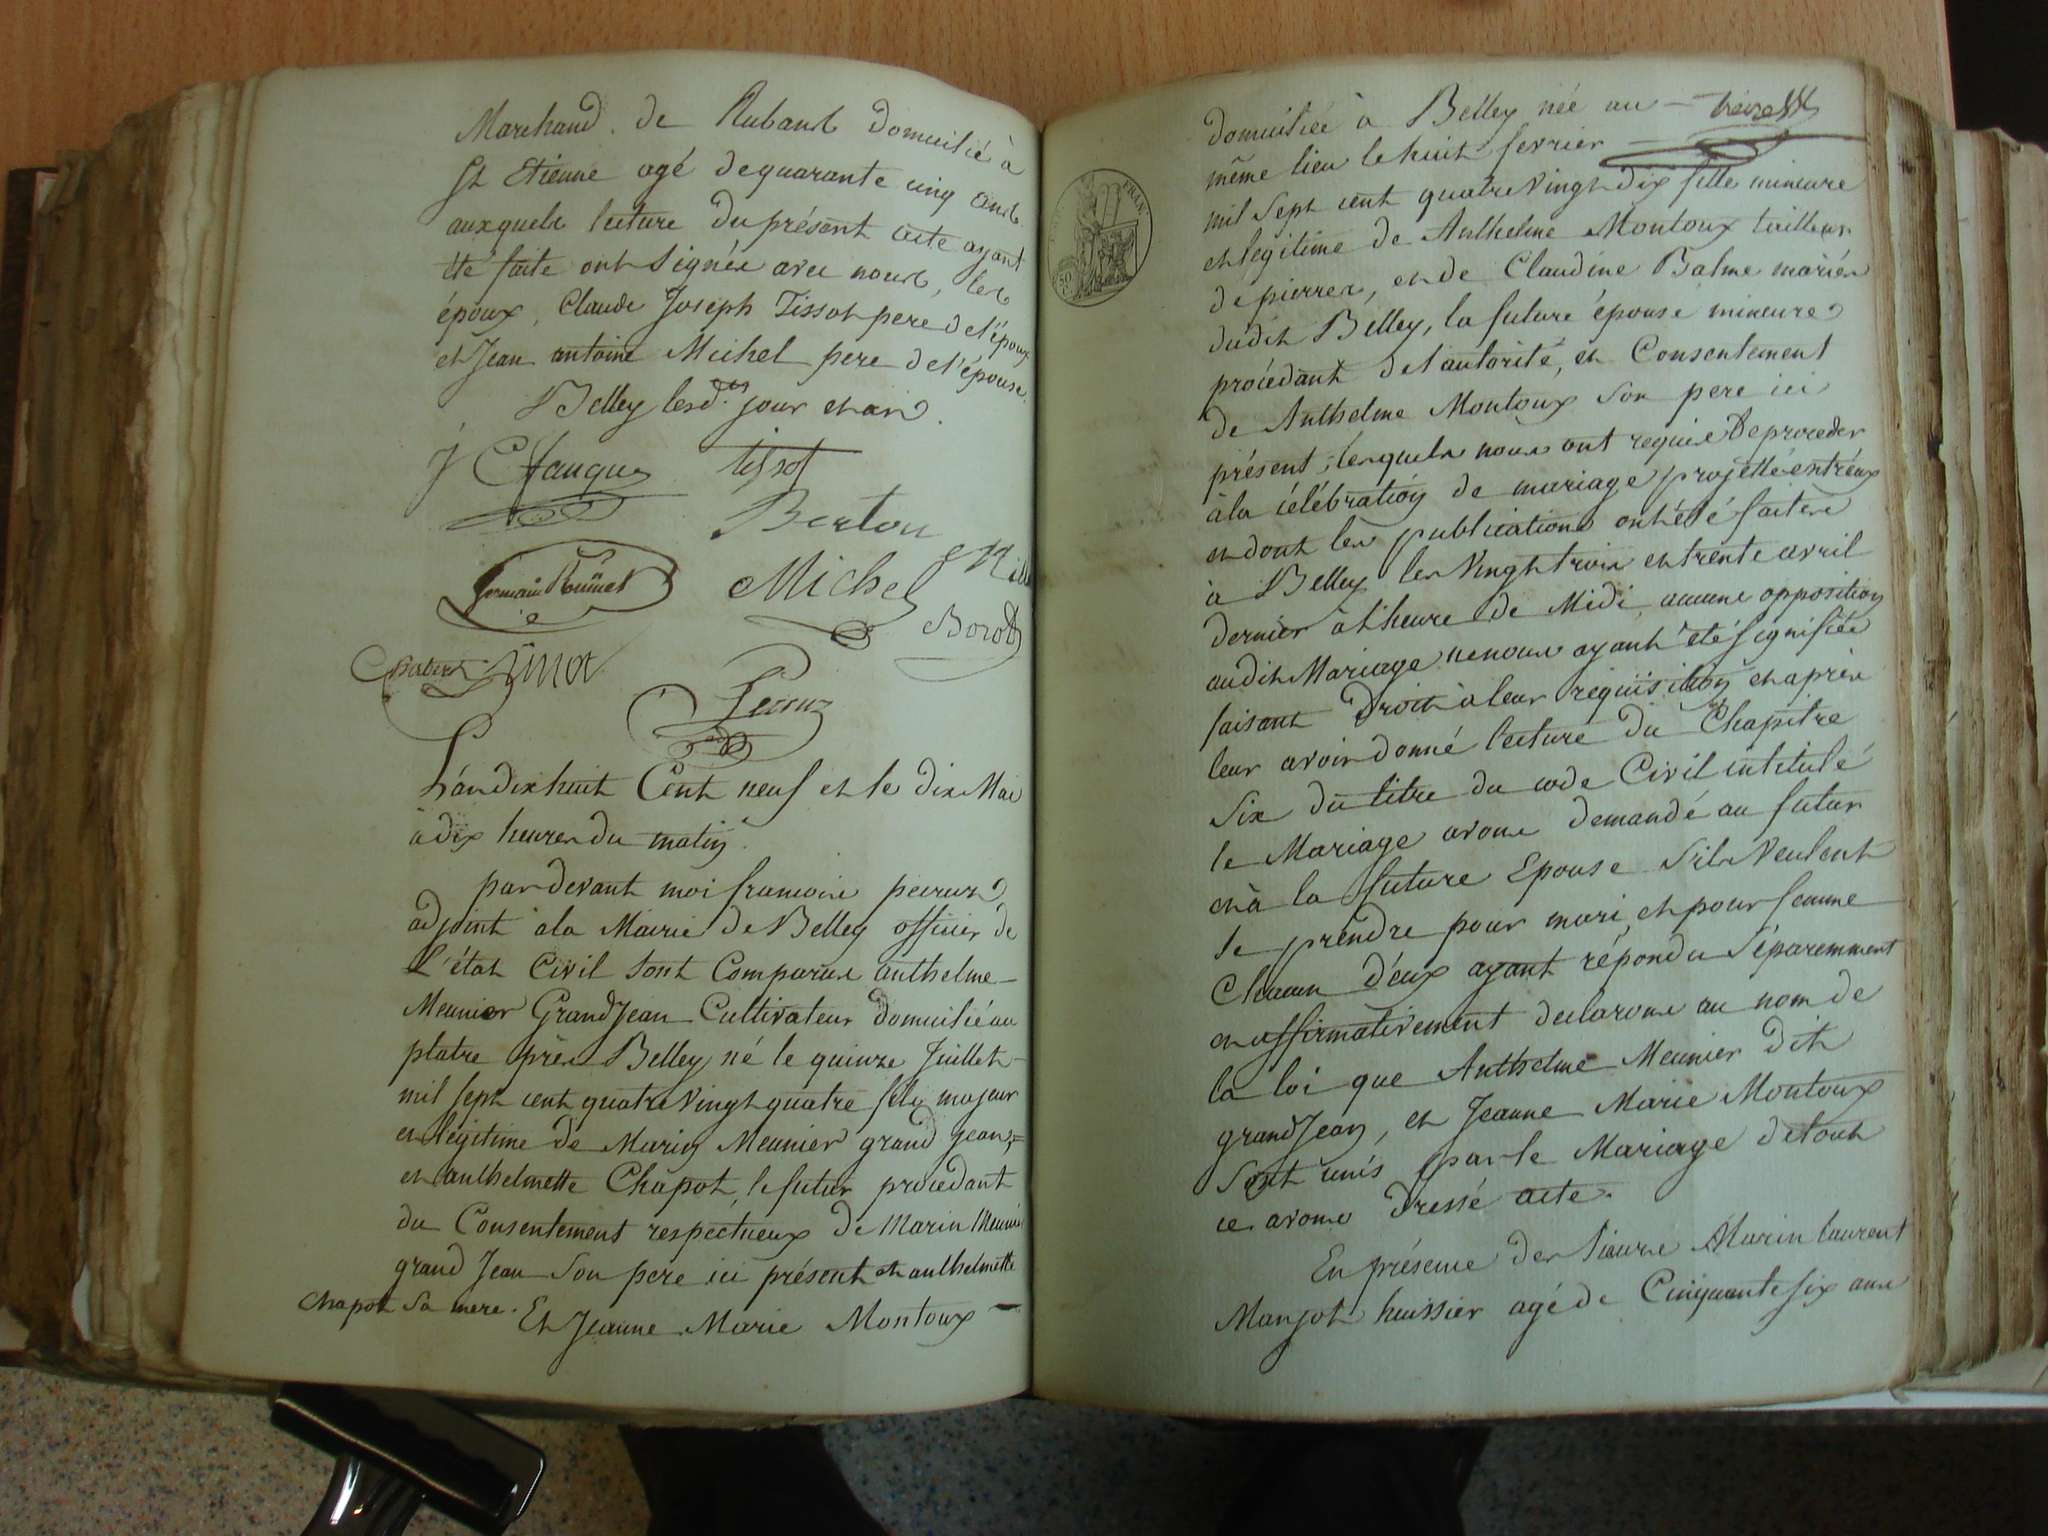 Marchand de Rubans domicilié à
St Etienne agé de quarante cinq ans
auxquels lecture du présent acte ayant
été faite ont signés avec nous, les
époux, Claude Joseph Tissot pere de l'époux
et Jean antoine Michel pere de l'épouse.
Belley lesd. jour et an.
tissot
Berton
Michel
Peccruz
L'an dix huit Cent neuf et le dix Mai
à dix heures du matin.
par devant moi francois peccruz
adjoint à la Mairie de Belley officier de
L'état Civil sont Comparus anthelme
Meunier GrandJean Cultivateur domicilié au
platre près Belley né le quinze Juillet
mil sept cent quatre vingt quatre fils majeur
et légitime de Marin Meunier grand jean,
et anthelmette Chapot, le futur procédant
du Consentement respectueux de Marin Meunier
grand Jean Son pere ici présent et anthelmette
Chapot sa mere. Et Jeanne Marie Montoux
domiciliée à Belley née au
même lieu le huit fevrier
mil sept cent quatre vingt dix fille mineure
et legitime de Anthelme Montoux tailleur
de pierres, et de Claudine Balme mariés
dudit Belley, la future épouse mineure
procédant de l'autorité, et Consentement
de Anthelme Montoux son pere ici
présent, lesquels nous ont requis de proceder
à la célébration de mariage projetté entr'eux
et dont les publications ont été faites
à Belley les vingt trois et trente avril
dernier à l'heure de Midi, aucune opposition
audit Mariage ne nous ayant été signifiée
faisant Droit à leur requisition et après
leur avoir donné lecture du Chapitre
Six du titre du code Civil intitulé
le Mariage avons demandé au futur
et à la future Epouse S'ils veulent
se prendre pour mari, et pour femme
Chacun d'eux ayant répondu séparemment
et affirmativement declarons au nom de
la loi que Anthelme Meunier dit
grandJean, et Jeanne Marie Montoux
Sont unis par le Mariage de tout
ce avons dressé acte.
En présence des Sieurs Marin laurent
Manjot huissier agé de Cinquante six ans